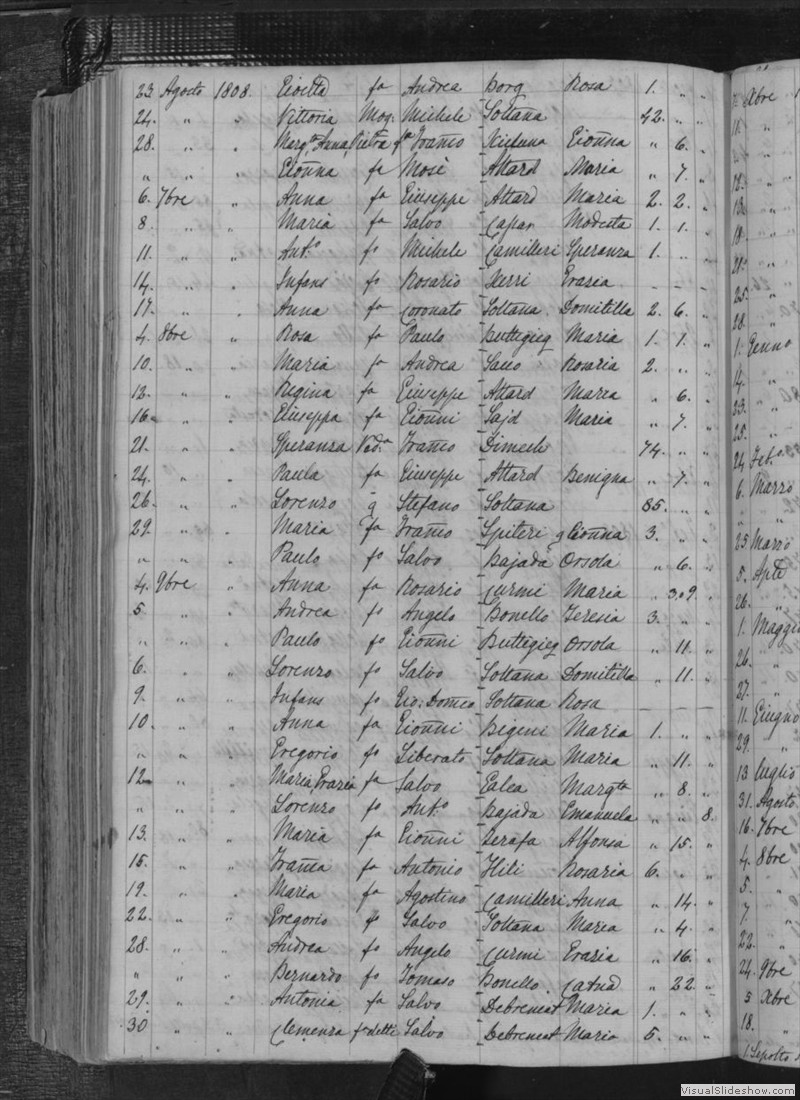 23 Agosto 1808. fa Andrea Borg Rosa 1. " "
24. " " Vittoria Mog: Michele Soltana 42. " "
28. " " Margta Anna Pietra fa Franco Gionna " 6. "
" " " Gionna fa Mosè Attard Maria " 7. "
6. 7bre " Anna fa Giuseppe Attard Maria 2. 2. "
8. " " Maria fa Salvo Modesta 1. 1. "
11. " " Anto fo Michele Camilleri Speranza 1. " "
14. " " Infans fo Rosario Xerri Grazia - - -
17. " " Anna fa Coronato Soltana Domitilla 2. 6. "
4. 8bre " Rosa fa Paulo Buttigieg Maria 1. 1. "
10. " " Maria fa Andrea Rosaria 2. " "
12. " " Regina fa Giuseppe Attard Maria " 6. "
16. " " Giuseppa fa Gionni Sajd Maria " 7. "
21. " " Speranza Veda Franco Dimech 74. " "
24. " " Paula fa Giuseppe Attard Benigna " 7. "
26. " " Lorenzo q Stefano Soltana 85. " "
29. " " Maria fa Franco Spiteri q Gionna 3. " "
" " " Paulo fo Salvo Bajada Orsola " 6. "
4. 9bre " Anna fa Rosario Curmi Maria " 3. 9.
5. " " Andrea fo Angelo Bonello Teresia 3. " "
" " " Paulo fo Gionni Buttigieg Orsola " 11. "
6. " " Lorenzo fo Salvo Soltana Domitilla " 11. "
9. " " Infans fo Gio: Domco Soltana Rosa - - -
10. " " Anna fa Gionni Bigeni Maria 1. " "
" " " Gregorio fo Liberato Soltana Maria " 11. "
12. " " Maria Grazia fa Salvo Galea Margta " 8. "
" " " Lorenzo fo Anto Bajada Emanuela " " 8.
13. " " Maria fa Gionni Serafa Alfonsa " 15. "
15. " " Franca fa Antonio Hili Rosaria 6. " "
19. " " Maria fa Agostino Camilleri Anna " 14. "
22. " " Gregorio fo Salvo Soltana Maria " 4. "
28. " " Andrea fo Angelo Curmi Grazia " 16. "
" " " Bernardo fo Tomaso Bonello Catnd " 22. "
29. " " Antonia fa Salvo Debrencat Maria 1. " "
30 " " Clemenza fa detti Salvo Debrencat Maria 5. " "
Xbre
1. Genno
14.
23.
25.
24 Feb.
6. Marzo
25 Marzo
5. Aple
26.
1. Maggio
26.
27.
11. Giugno
29.
13 Luglio
31. Agosto
16. 7bre
4. 8bre
5.
7.
22.
24. 9bre
5 Xbre
18.
1. Sepolto
VisualSlideshow.com